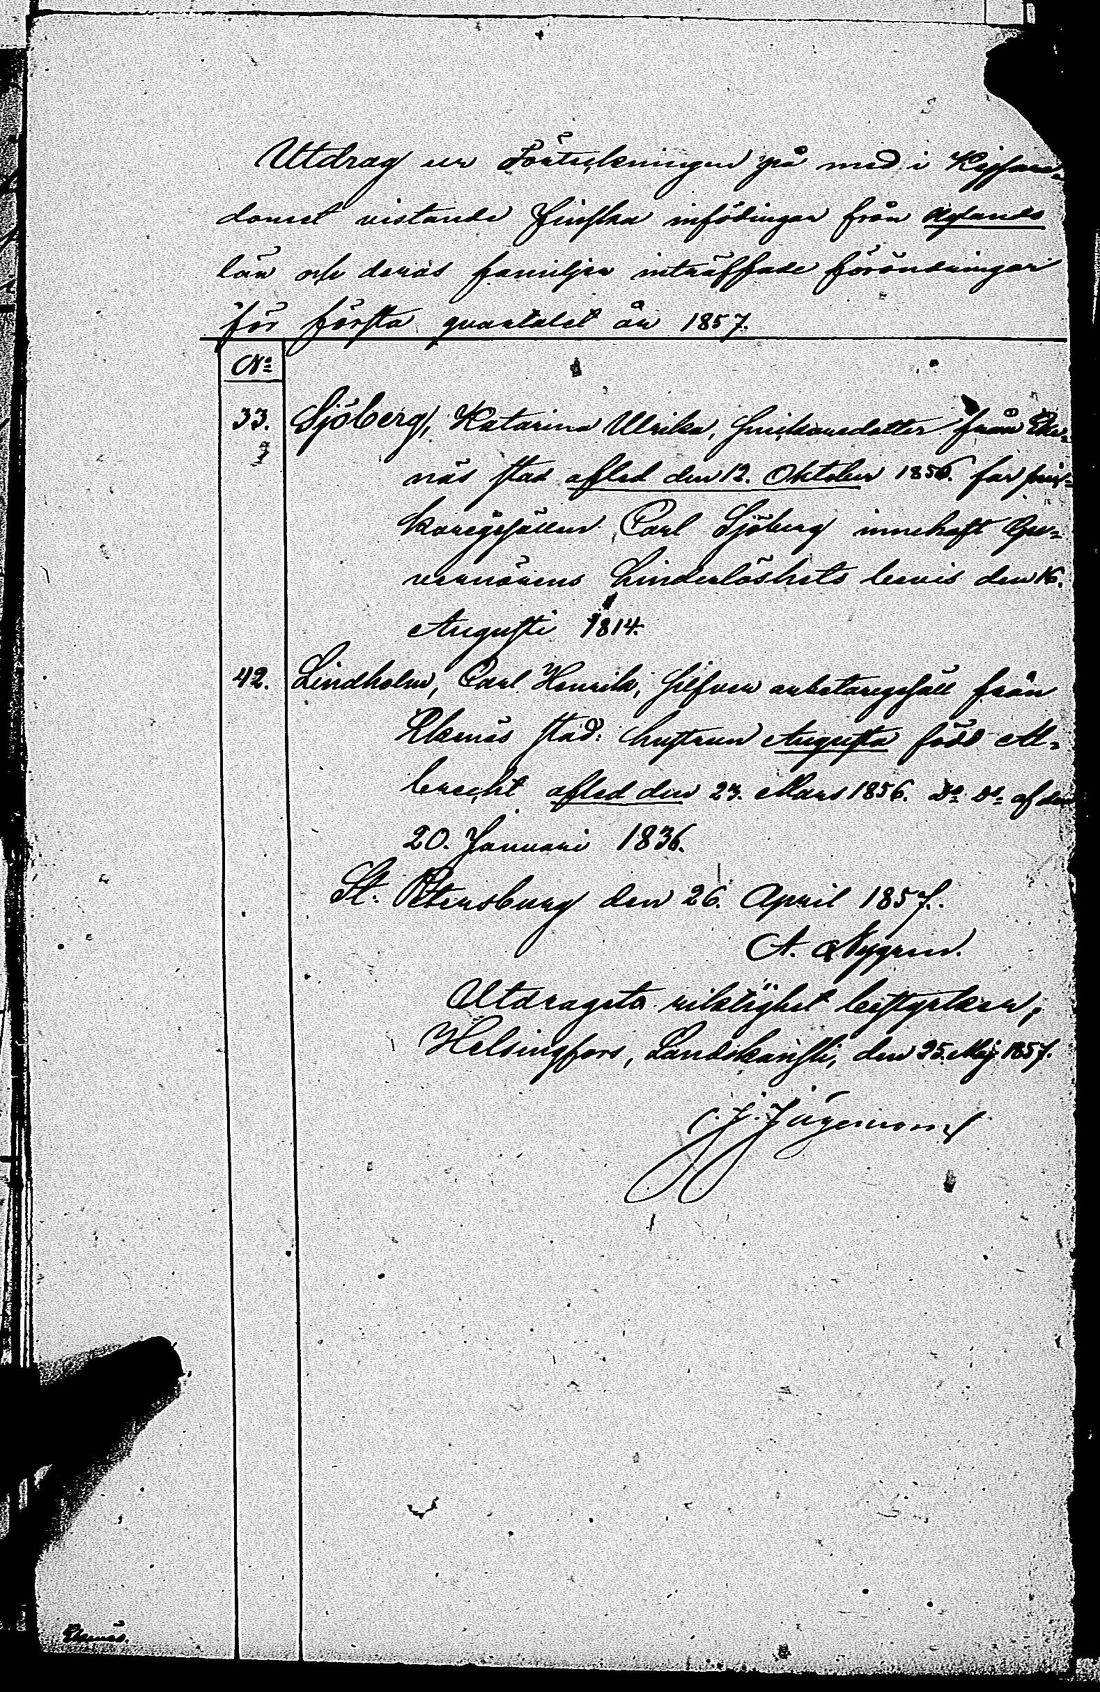 Utdrag ur Förteckningen på med i Kejsare-
dömet vistande Finska infödingar från Nylands
län och deras familjer inträffade förändringar
för första quartalet år 1857.
No
33. Sjöberg, Katarina Ulrika, snickaredotter från Eke-
näs stad afled den 12. Oktober 1856. far snic-
karegesällen Carl Sjöberg innehaft Gu-
vernörens hinderlöshets bevis den 16.
Augusti 1814.
42. Lindholm, Carl Henrik, silfver arbetaregesäll från
Ekenäs stad: hustrun Augusta född Al-
brecht afled den 23. Mars 1856. Do Do af den
20. Januari 1836.
St. Petersburg den 26. April 1857.
A. Nygren.
Utdragets riktighet bestyrker,
Helsingfors, Landskansli, den 25. Maj 1857.
Ekenäs.